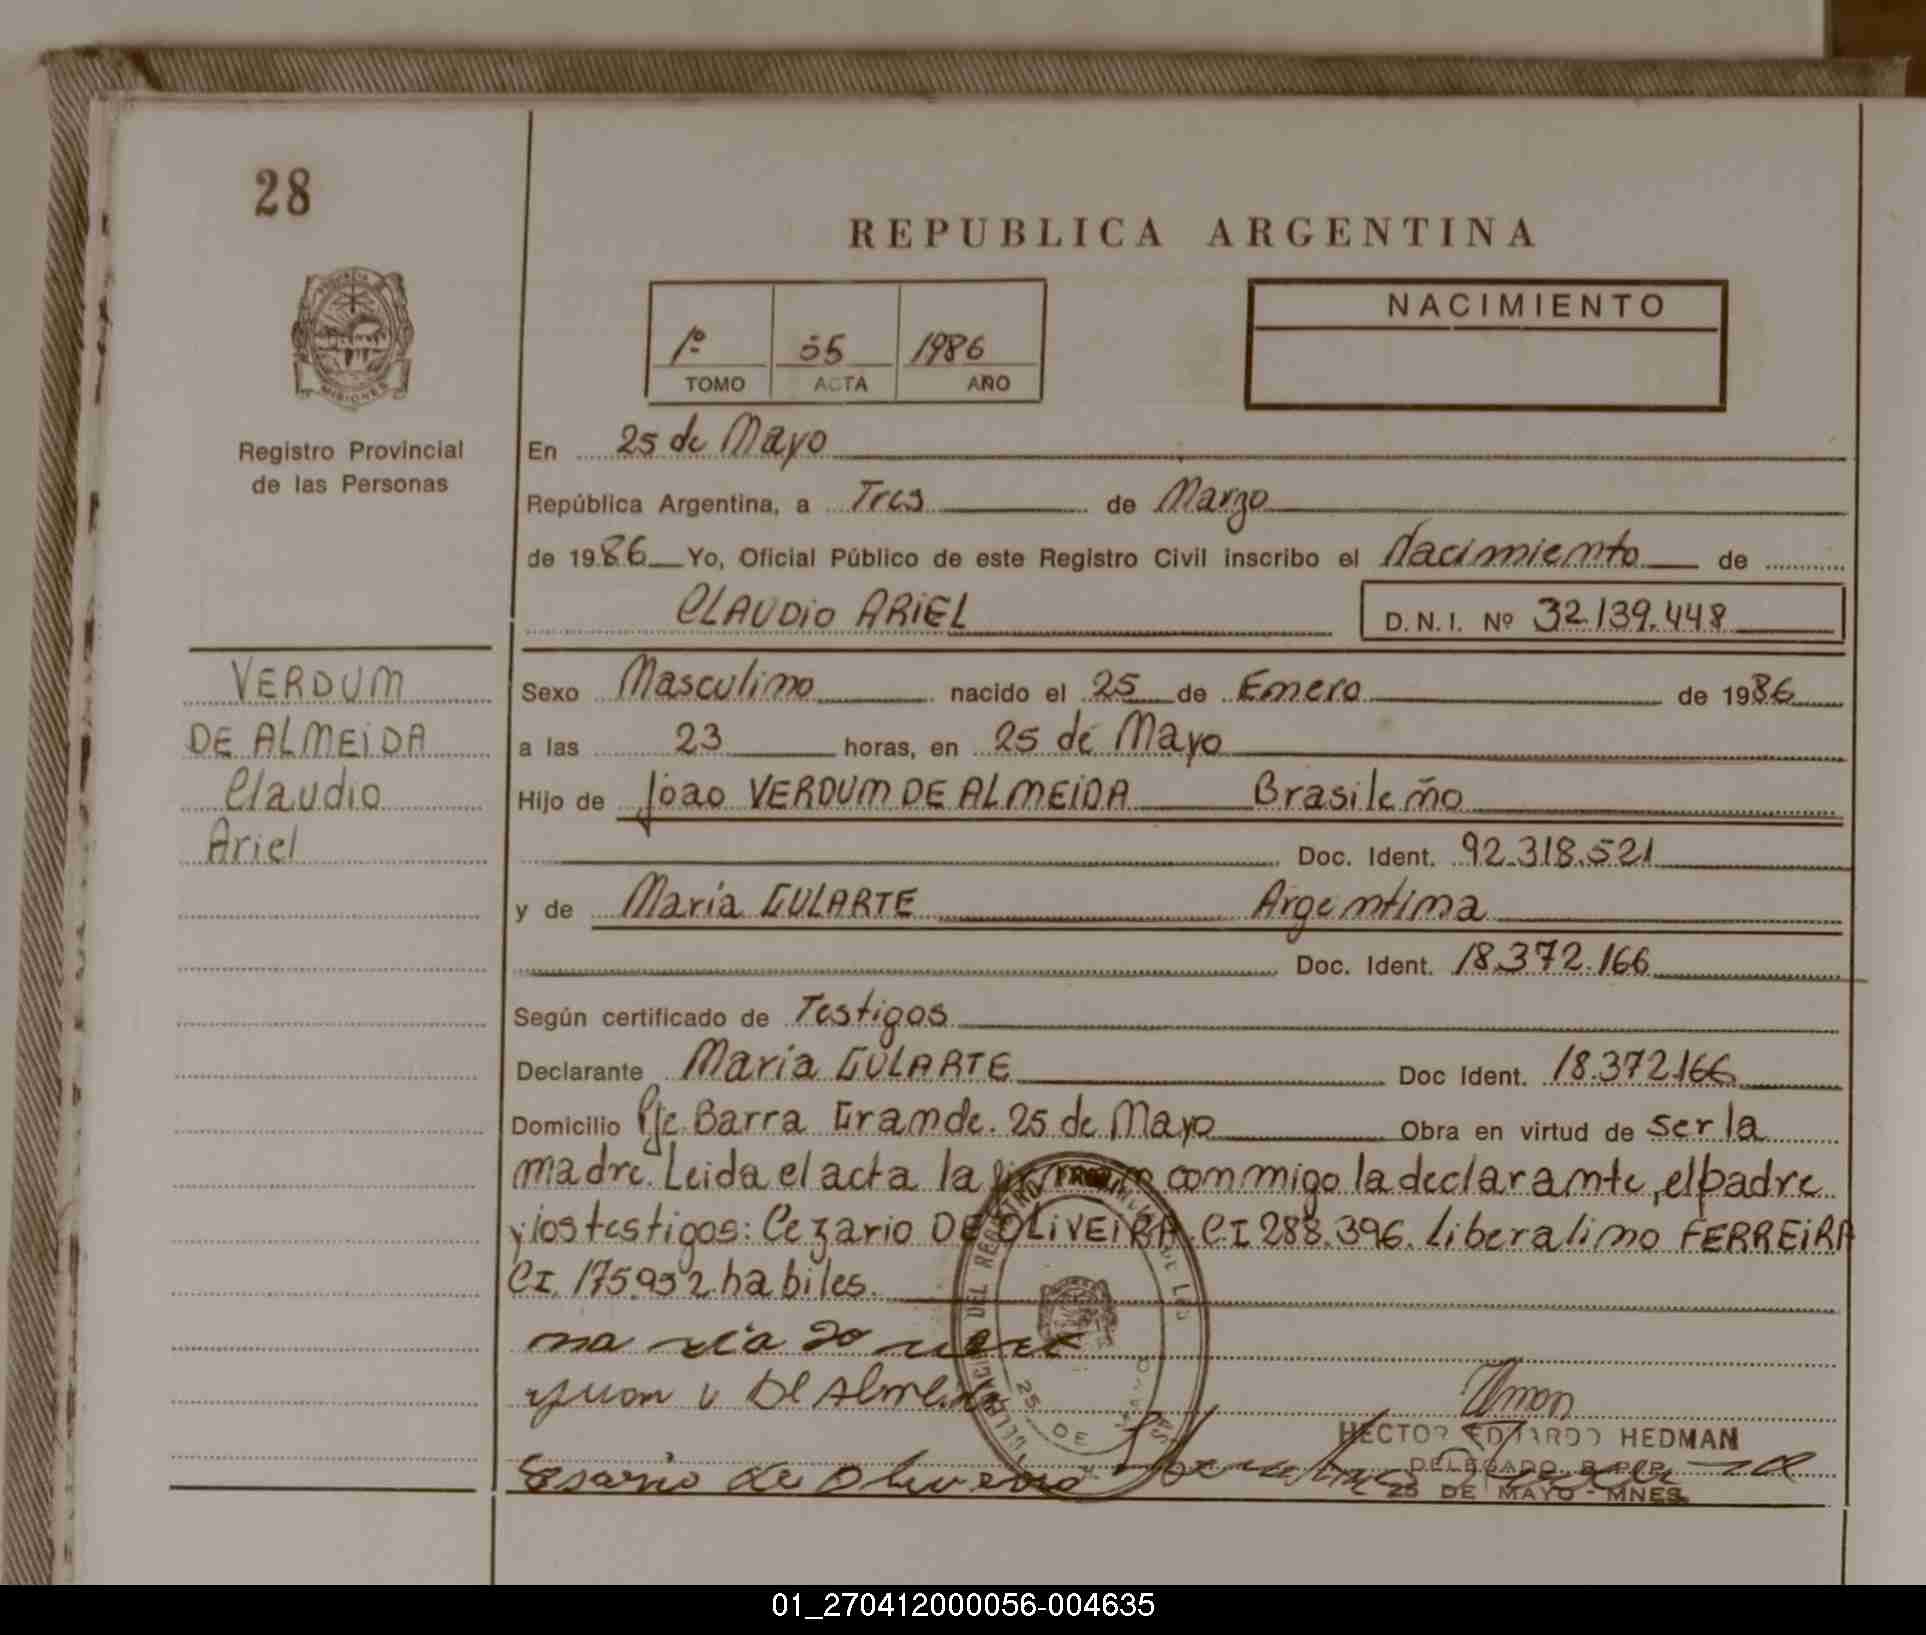 28
REPUBLICA ARGENTINA
NACIMIENTO
1º 55 1986
TOMO ACTA AÑO
PROVINCIA
MISIONES
Registro Provincial
de las Personas
En 25 de Mayo
República Argentina, a Tres de Marzo
de 1986 Yo, Oficial Público de este Registro Civil inscribo el Nacimiento de
CLAUDIO ARIEL D.N.I. Nº 32.139.448
VERDUM
DE ALMEIDA
Claudio
Ariel
Sexo Masculino nacido el 25 de Enero de 1986
a las 23 horas, en 25 de Mayo
Hijo de Joao VERDUM DE ALMEIDA Brasileño
Doc. Ident. 92.318.521
y de Maria GULARTE Argentina
Doc. Ident. 18.372.166
Según certificado de Testigos
Declarante Maria GULARTE Doc Ident. 18.372.166
Domicilio Pje. Barra Grande. 25 de Mayo Obra en virtud de ser la
madre. Leida el acta la firman conmigo la declarante, el padre
y los testigos: Cezario DE OLIVEIRA. CI 288.396. Liberalino FERREIRA
CI. 175.932 habiles.
DELEGACION DEL REGISTRO PROVINCIAL DE LAS
25 DE MAYO
V De Almeida
HECTOR EDUARDO HEDMAN
DELEGADO R.P.P.
25 DE MAYO - MNES.
de Oliveira
01_270412000056-004635